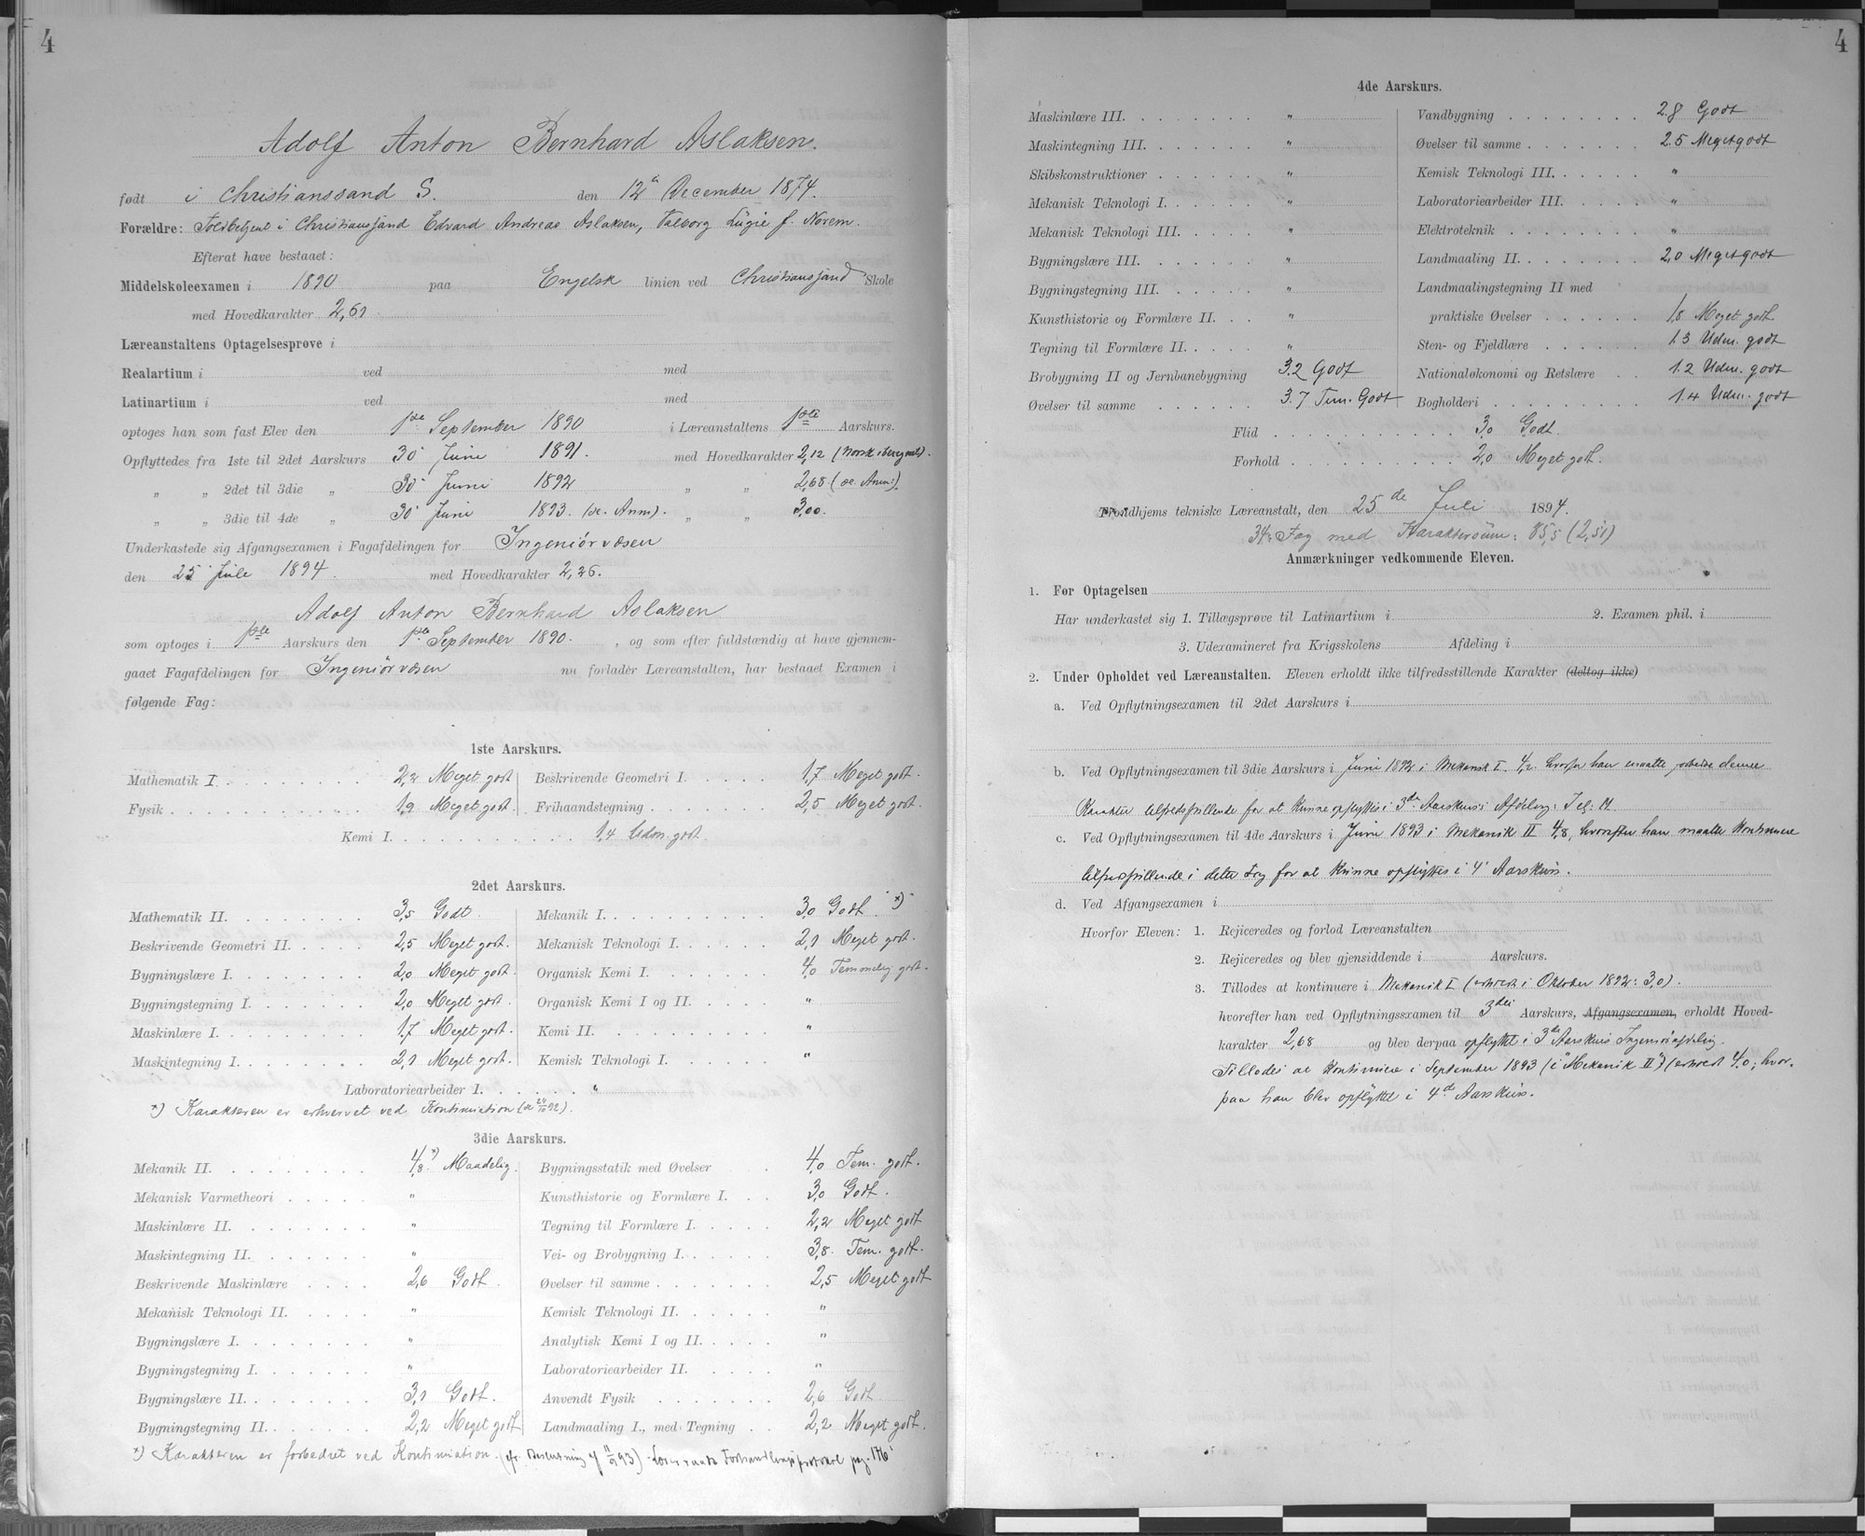 4
Adolf Anton Bernhard Aslaksen.
født i Christianssand S. den 12te December 1874.
Forældre: Toldbetjent i Christianssand Edvard Andreas Aslaksen, Valborg f. Norem.
Efterat have bestaaet:
Middelskoleexamen i 1890 paa Engelsk linien ved Christianssand Skole
med Hovedkarakter 2,61
Læreanstaltens Optagelsesprøve i
Realartium i ved med
Latinartium i ved med
optoges han som fast Elev den 1ste September 1890 i Læreanstaltens 1ste Aarskurs.
Opflyttedes fra 1ste til 2det Aarskurs 30 Juni 1891. med Hovedkarakter 2,12 (Norsk iberegnet).
„ „ 2det til 3die „ 30 Juni 1892 „ „ 2,68 (se Anm:).
„ „ 3die til 4de „ 30 Juni 1893. (se Anm). „ „ 3,00.
Underkastede sig Afgangsexamen i Fagafdelingen for Ingeniørvæsen
den 25 Juli 1894. med Hovedkarakter 2,26.
Adolf Anton Bernhard Aslaksen
som optoges i 1ste Aarskurs den 1ste September 1890. , og som efter fuldstændig at have gjennem-
gaaet Fagafdelingen for Ingeniørvæsen nu forlader Læreanstalten, har bestaaet Examen i
følgende Fag:
1ste Aarskurs.
Mathematik I 2,2 Meget godt Beskrivende Geometri I. 1,7 Meget godt.
Fysik 1,9 Meget godt. Frihaandstegning 2,5 Meget godt.
Kemi I. 1,4 Udm. godt.
2det Aarskurs.
Mathematik II. 3,5 Godt Mekanik I. 3,0 Godt. *)
Beskrivende Geometri II. 2,5 Meget godt. Mekanisk Teknologi I. 2,1 Meget godt.
Bygningslære I. 2,0 Meget godt. Organisk Kemi I. 4,0 Temmelig godt.
Bygningstegning I. 2,0 Meget godt. Organisk Kemi I og II. "
Maskinlære I. 1,7 Meget godt. Kemi II. "
Maskintegning I. 2,1 Meget godt. Kemisk Teknologi I. "
Laboratoriearbeider I. "
*) Karakteren er erhvervet ved Kontinuation
3die Aarskurs.
Mekanik II. 4,8 *) Maadelig. Bygningsstatik med Øvelser 4,0 Tem. godt.
Mekanisk Varmetheori " Kunsthistorie og Formlære I. 3,0 Godt.
Maskinlære II. " Tegning til Formlære I. 2,2 Meget godt
Maskintegning II. " Vei- og Brobygning I. 3,8. Tem. godt.
Beskrivende Maskinlære 2,6 Godt. Øvelser til samme 2,5 Meget godt
Mekanisk Teknologi II. " Kemisk Teknologi II. "
Bygningslære I. " Analytisk Kemi I og II. "
Bygningstegning I. " Laboratoriearbeider II. "
Bygningslære II. 3,1 Godt. Anvendt Fysik 2,6 Godt
Bygningstegning II. 2,2 Meget godt Landmaaling I., med Tegning 2,2 Meget godt.
*) Karakteren er forbedret ved Kontinuation. (cfr. Beslutning af 93) Lærerraads Forhandlingsprotokol pag. 176
4
4de Aarskurs.
Maskinlære III. " Vandbygning 2.8 Godt
Maskintegning III. " Øvelser til samme 2.5 Megetgodt
Skibskonstruktioner " Kemisk Teknologi III. "
Mekanisk Teknologi I. " Laboratoriearbeider III. "
Mekanisk Teknologi III. " Elektroteknik "
Bygningslære III. " Landmaaling II. 2,0 Megetgodt
Bygningstegning III. " Landmaalingstegning II med
Kunsthistorie og Formlære II. " praktiske Øvelser 1.8 Meget godt
Tegning til Formlære II. " Sten- og Fjeldlære 1.3 Udm. godt
Brobygning II og Jernbanebygning 3.2 Godt Nationaløkonomi og Retslære 1.2 Udm. godt
Øvelser til samme 3.7 Tem. Godt Bogholderi 1.4 Udm. godt
Flid 3,0 Godt.
Forhold 2,0 Meget godt.
Trondhjems tekniske Læreanstalt, den 25de Juli 1894.
34 Fag med Karaktersum: 85,5 (2,51)
Anmærkninger vedkommende Eleven.
1. Før Optagelsen
Har underkastet sig 1. Tillægsprøve til Latinartium i 2. Examen phil. i
3. Udexamineret fra Krigsskolens Afdeling i
2. Under Opholdet ved Læreanstalten. Eleven erholdt ikke tilfredsstillende Karakter (deltog ikke)
a. Ved Opflytningsexamen til 2det Aarskurs i
b. Ved Opflytningsexamen til 3die Aarskurs i Juni 1892 i Mekanik I. 4,2. hvorfor han maatte forbedre denne
Karakter tilfredsstillende for at kunne opflyttes i 3die Aarskurs
c. Ved Opflytningsexamen til 4de Aarskurs i Juni 1893 i Mekanik II 4,8, hvorefter han maatte kontinuere
tilfredsstillende i dette Fag for at kunne opflyttes i 4 Aarskurs.
d. Ved Afgangsexamen i
Hvorfor Eleven: 1. Rejiceredes og forlod Læreanstalten
2. Rejiceredes og blev gjensiddende i Aarskurs.
3. Tillodes at kontinuere i Mekanik I (erhvert i Oktober 1892: 3,0).
hvorefter han ved Opflytningssxamen til 3die Aarskurs, Afgangsexamen, erholdt Hoved-
karakter 2,68 og blev derpaa opflyttet i 3die Aarskurs Ingeniørafdeling.
Tillodes at kontinuere i September 1893 (i "Mekanik II") (erhvert 4,0; hvor-
paa han blev opflyttet i 4de Aarskurs.